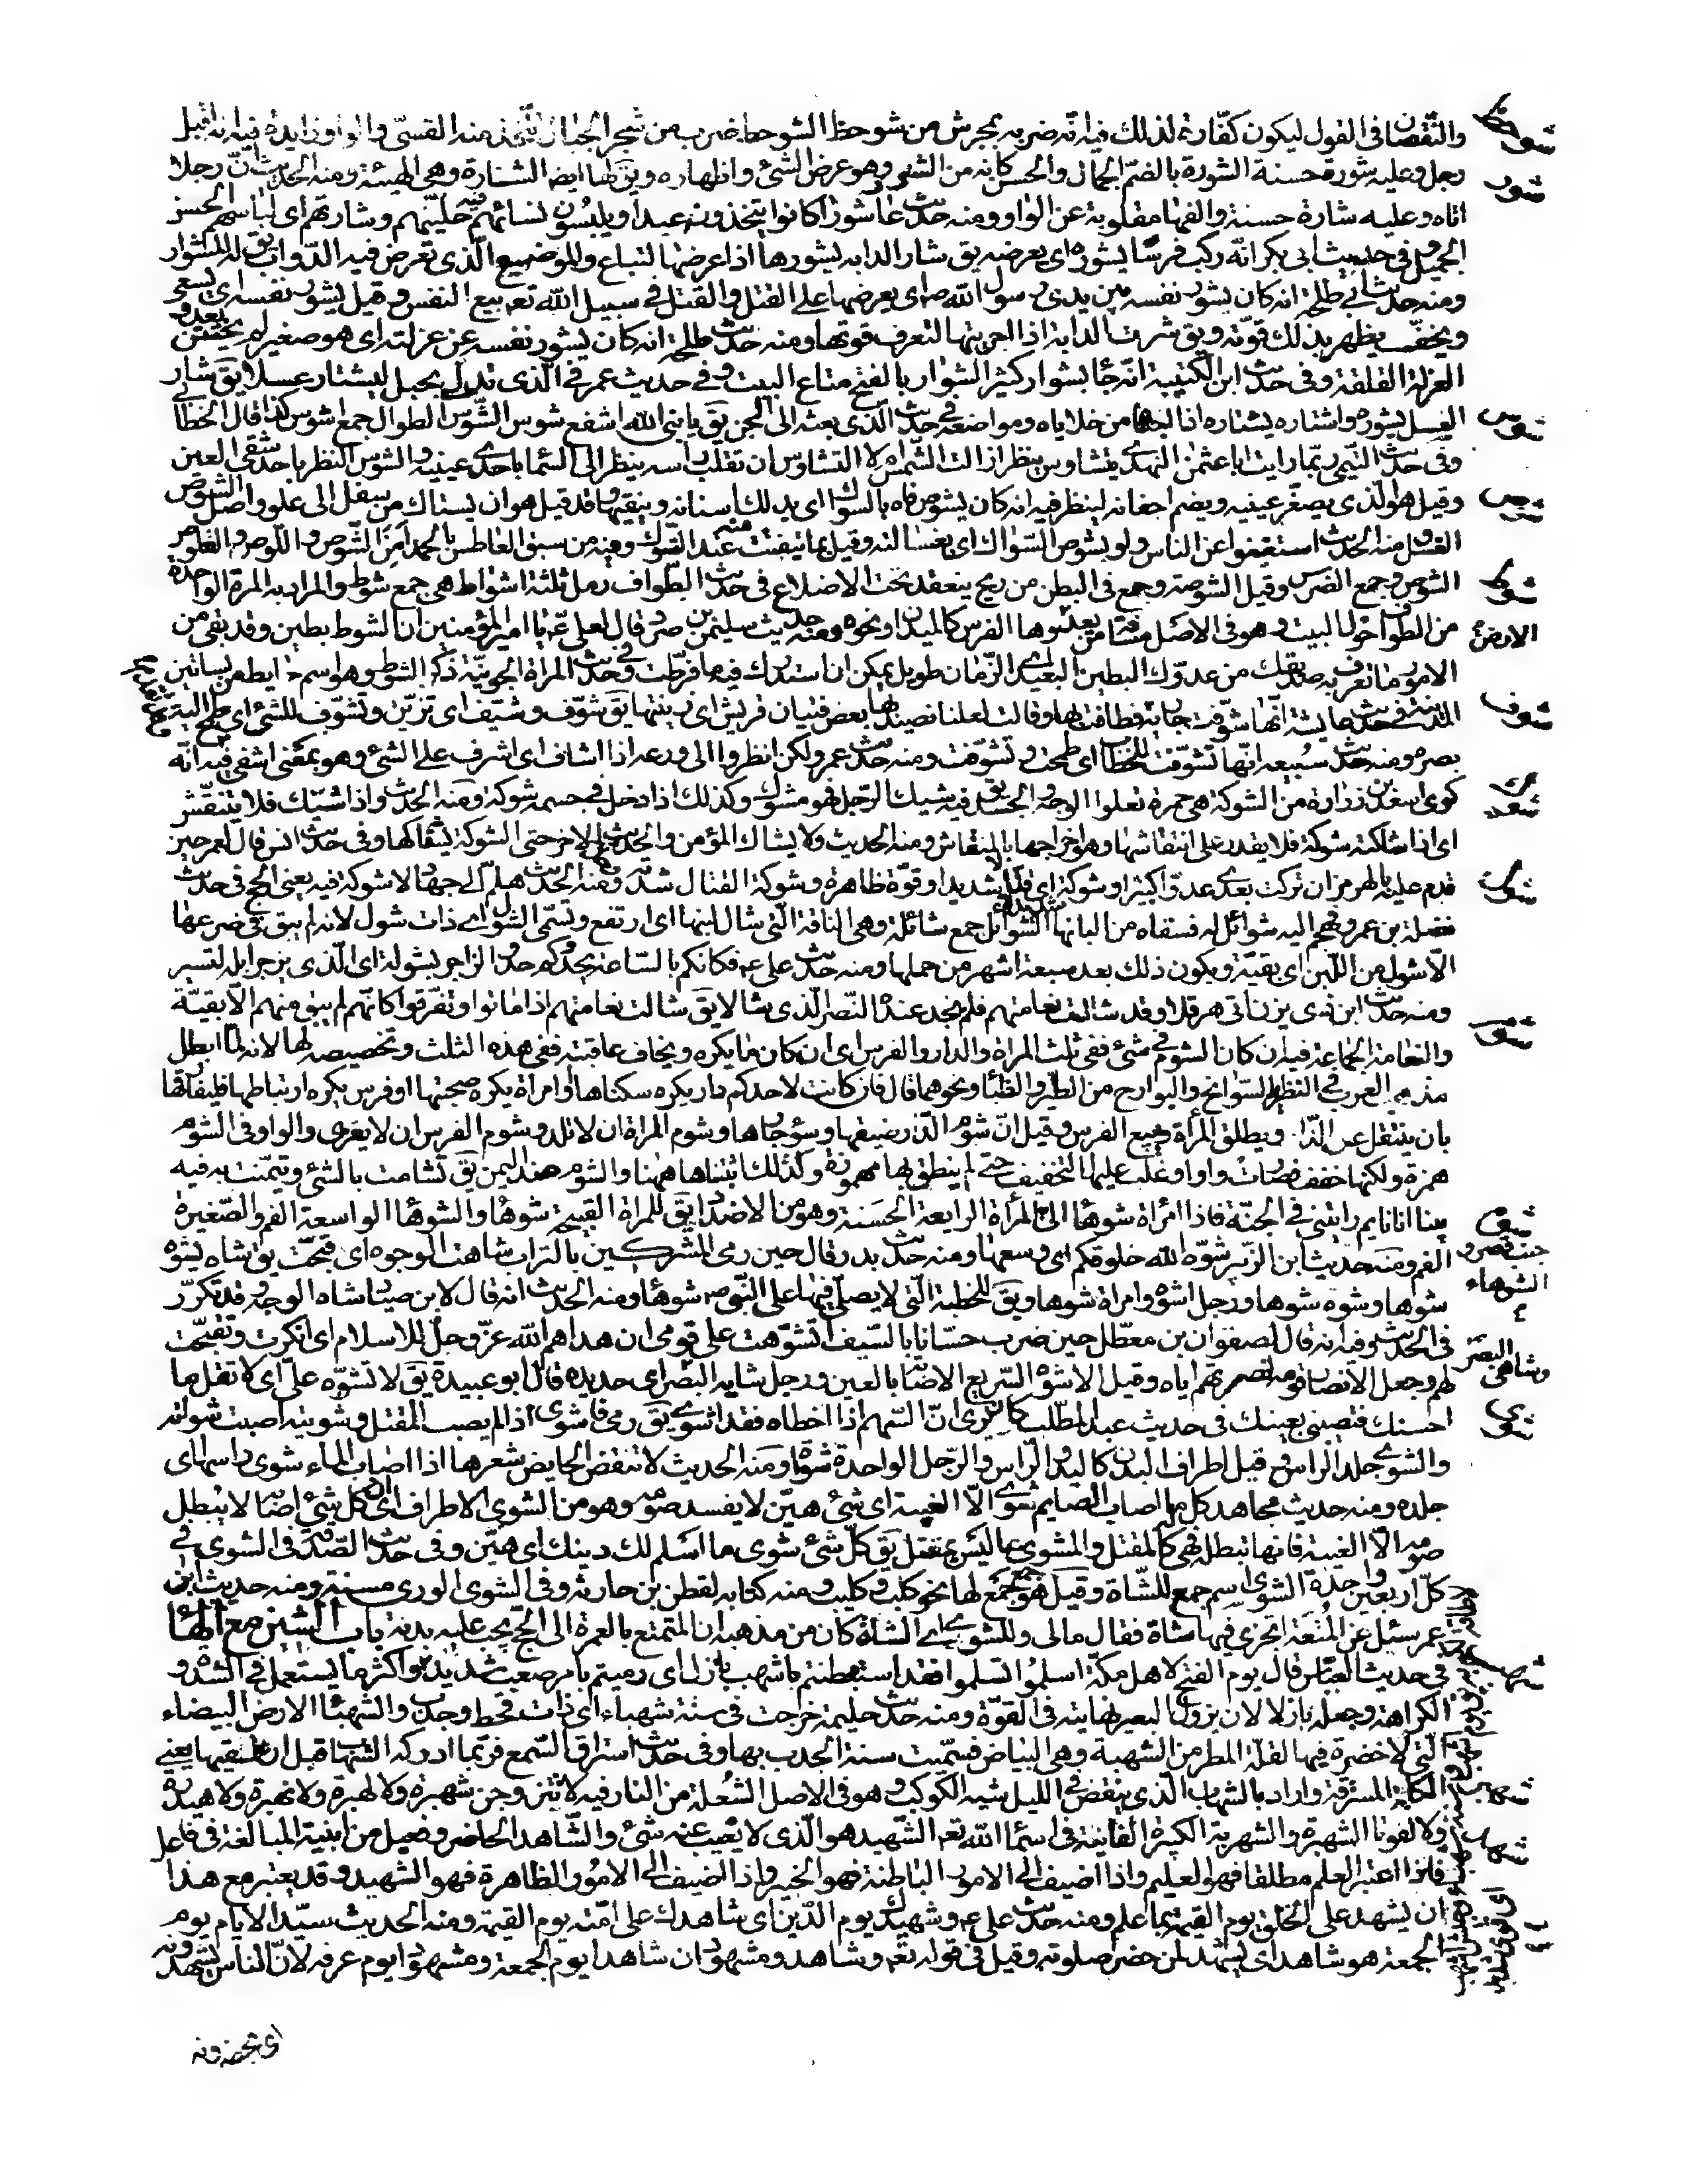 شوحط
والنقصان في القول ليكون كفارة لذلك فيه انه ضربه بمخرش من شوحط الشوحط ضرب من شجر الجبال يتخذ منه القسي والواو زايدة فيه انه اقبل
شور
رجل وعليه شورة حسنة الشورة بالضم الجمال والحسن كانه من الشور وهو عرض الشئ واظهاره ويق لها ايضا الشارة وهي الهيئة ومنه الحديث ان رجلا
اتاه وعليه شارة حسنة والفها مقلوبة عن الواو ومنه حديث عاشورا كانوا يتخذونه عيدا ويلبسون نسائهم فيه حليهم وشارتهم اى لباسهم الحسن
الجميل وفي حديث ابي بكر انه ركب فرسا يشوره اى يعرضه يق شار الدابه يشورها اذا عرضها لتباع والموضع الذى تعرض فيه الدواب يق له المشوار
ومنه حديث ابي طلحة انه كان يشور نفسه بين يدى رسول الله ص اى يعرضها على القتل والقتل في سبيل الله تعـ بيع النفس وقيل يشور نفسه اى يسعى
ويخف يظهر بذلك قوته ويق شرت الدابة اذا اجريتها لتعرف قوتها ومنه حديث طلحة انه كان يشور نفسه عن عزلته اى هو صغير لم يختتن بعد و
العزلة القلفة وفي حديث ابن اللتبية انه جا بشوار كثير الشوار بالفتح متاع البيت وفي حديث عمر في الذى تدلى بحبل ليشتار عسلا يق شار
شوس
العسل يشوره واشتاره يشتاره اذا اجتناه من خلاياه ومواضعه في حديث الذى بعثه الى الجن يق يا نبي الله اشفع شوس الشوس الطوال جمع اشوس كذا قال الخطابي
وفي حديث التيمي ربما رايت ابا عثمن النهدي يتشاوس ينظر ازالت الشمس ام لا التشاوس ان تقلب راسه ينظر الى السما باحدي عينيه والشوس النظر باحد شقي العين
شوص
وقيل هو الذى يصغر عينيه ويضم اجفانه لينظر فيه انه كان يشوص فاه بالسواك اى يدلك اسنانه وينقيها وقد قيل هو ان يستاك من سفل الى علو واصل الشوص
الغسل ومنه الحديث استغنوا عن الناس ولو بشوص السواك اى بغسالته وقيل بما يتفتت منه عند التسوك وفيه من سبق العاطس بالحمد امن الشوص واللوص والعلوص
شوط
الشوص وجع الضرس وقيل الشوصة وجع في البطن من ريح ينعقد تحت الاضلاع في حديث الطواف رمل ثلثة اشواط هي جمع شوط والمراد به المرة الواحدة
من الطواف حول البيت وهو في الاصل مسافة من الارض يعدوها الفرس كالميدان ونحوه ومنه حديث سليمن بن صرد قال لعلي عم يا امير المؤمنين ان الشوط بطين وقد بقي من
الامور ما تعرف به صديقك من عدوك البطين البعيد اى الزمان طويل يمكن ان استدرك فيه ما فرطت وفي حديث المراة الجونية ذكر الشوط وهو اسم حايط من بساتين
شوف
المدينة في حديث عايشة انها شوفت جارية فطافت بها وقالت لعلنا نصيد بها بعض فتيان قريش اى زينتها يق شوف وشيف اى تزين وتشوف للشئ اى طمح اليه
بصره ومنه حديث سبيعه انها تشوفت للخطاب اى طمحت وتشوفت ومنه حديث عمر ولكن انظروا الى ورعه اذا اشاف اى اشرف على الشئ وهو بمعنى اشفي فيه انه
شوك
كوى اسعد بن زرارة من الشوكة هي حمرة تعلوا الوجه والجسد يق فيه شيك الرجل فهو مشوك وكذلك اذا دخل في جسمه شوكة ومنه الحديث واذا شيك فلا يتنقش
اى اذا شاكته شوكة فلا يقدر على انتقاشها وهو اخراجها بالمنقاش ومنه الحديث ولا يشاك المؤمن والحديث الاخر حتى الشوكة يشاكها وفي حديث انس قال لعمر حين
شول
قدم عليه بالهرمزان تركت بعدي عدوا كثيرا وشوكة اى قتالا شديدا وقوة ظاهرة وشوكة القتال شدته ومنه الحديث هلم الى جهاد لا شوكة فيه يعني الحج في حديث
نضلة بن عمرو فهجم اليه شوائل له فسقاه من البانها الشوائل جمع شائلة وهي الناقة التي شال لبنها اى ارتفع وتسمى الشول اى ذات شول لانه لم يبق في ضرعها
الا شول من اللبن اى بقية ويكون ذلك بعد سبعة اشهر من حملها ومنه حديث علي عم فكانكم بالساعة يحدوكم حدو الزاجر بشوله اى الذى يزجر ابله لتسير
ومنه حديث ابن ذى يزن اتي هرقلا وقد شالت نعامتهم فلم يجد عنده النصر الذى سالا يق شالت نعامتهم اذا ماتوا وتفرقوا كانهم لم يبق منهم الا بقية
شوم
والنعامة الجماعة فيه ان كان الشوم في شئ ففي ثلث المراة والدار والفرس اى ان كان ما يكره ويخاف عاقبته ففي هذه الثلث وتخصيصه لها لانه لما ابطل
مذهب العرب في التطير بالسوانح والبوارح من الطير والظبا ونحوهما قال فان كانت لاحدكم دار يكره سكناها او امراة يكره صحبتها او فرس يكره ارتباطها فليفارقها
بان ينتقل عن الدار ويطلق المرأة ويبيع الفرس وقيل ان شوم الدار ضيقها وسوء جارها وشوم المراة ان لا تلد وشوم الفرس ان لا يغزى والواو في الشوم
همزة ولكنها خففت فصارت واوا وغلب عليها التخفيف حتى لم ينطق بها مهموزة ولذلك اثبتناها ههنا والشوم ضد اليمن يق تشامت بالشئ وتيمنت به فيه
شوه
بينا انا نايم رايتني في الجنة فاذا امراة شوهاء الى جنب قصر الشوهاء المرأة الرايعة الحسنة وهو من الاضداد يق للمراة القبيحة شوها والشوها الواسعة الفم والصغيرة
الفم ومنه حديث ابن الزبير شوه الله حلوقكم اى وسعها ومنه حديث بدر قال حين رمى المشركين بالتراب شاهت الوجوه اى قبحت يق شاه يشوه
شوها وشوه شوها ورجل اشوه وامراة شوها ويق للخطبة التي لا يصلى فيها على النبي ص شوها ومنه الحديث انه قال لابن صياد شاه الوجه وقد تكرر
في الحديث وفيه انه قال لصفوان بن معطل حين ضرب حسانا بالسيف اتشوهت على قومى ان هداهم الله عز وجل للاسلام اى انكرت وتقبحت
لهم وجعل الانصار قومه لنصرتهم اياه وقيل الاشوه السريع الاصابة بالعين ورجل شايه البصر وشاهى البصر اى حديده قال ابو عبيدة يق لا تشوه علي اى لا تقل ما
شوى
احسنك فتصيبني بعينك في حديث عبد المطلب كان يرى ان السهم اذا اخطاه فقد اشوي يق رمى فاشوى اذا لم يصب المقتل وشويته اصبت شواته
والشوي جلد الراس وقيل اطراف البدن كاليد والراس والرجل الواحدة شواة ومنه الحديث لا تنقض الحايض شعرها اذا اصاب الماء شوى راسها اى
جلده ومنه حديث مجاهد كل ما اصاب الصايم شوى الا الغيبة اى شئ هين لا يفسد صومه وهو من الشوى الاطراف اى ان كل شئ اصابه لا يبطل
صومه الا الغيبة فانها تبطله فهي كالمقتل والشوى ما ليس بمقتل يق كل شئ شوى ما اسلم لك دينك اى هين وفي حديث الصدقة في الشوى في
كل اربعين واحدة الشوى اسم جمع للشاة وقيل هو جمع لها نحو كلب وكليب ومنه كتابه لقطن بن حارثه وفي الشوى الورى مسنة ومنه حديث ابن
عمر سئل عن المتعة اتجزي فيها شاة فقال مالى وللشوى اى الشاة كان من مذهبه ان المتمتع بالعمرة الى الحج يجب عليه بدنة باب الشين مع الها
شهب
في حديث العباس قال يوم الفتح لاهل مكة اسلموا تسلموا فقد استبطنتم باشهب بازل اى رميتم بامر صعب شديد واكثر ما يستعمل في الشدة و
الكراهة وجعله بازلا لان بزول البعير نهايته في القوة ومنه حديث حليمة خرجت في سنة شهباء اى ذات قحط وجدب والشهبا الارض البيضاء
التي لا خضرة فيها لقلة المطر من الشهبة وهي البياض فسميت سنة الجدب بها وفي حديث استراق السمع فربما ادركه الشهاب قبل ان يلقيها يعني
شهبر
الكلمة المسترقة واراد بالشهاب الذى ينقض في الليل شبه الكوكب وهو في الاصل الشعلة من النار فيه لا تتزوجن شهبرة ولا لهبرة ولا نهبرة ولا هيدره
شهد
ولا لفوتا الشهبرة والشهربة الكبيرة الفانية في اسما الله تعـ الشهيد هو الذى لا يغيب عنه شئ والشاهد الحاضر وفعيل من ابنية المبالغة في فاعل
فاذا اعتبر العلم مطلقا فهو العليم واذا اضيف الى الامور الباطنة فهو الخبير واذا اضيف الى الامور الظاهرة فهو الشهيد وقد يعتبر مع هذا
ان يشهد على الخلق يوم القيمة بما علم ومنه حديث علي عم وشهيدك يوم الدين اى شاهدك على امته يوم القيمة ومنه الحديث سيد الايام يوم
الجمعة هو شاهد اى يشهد لمن حضر صلوته وقيل في قوله تعـ وشاهد ومشهود ان شاهدا يوم الجمعة ومشهودا يوم عرفه لان الناس يشهدونه
اى يحضرونه